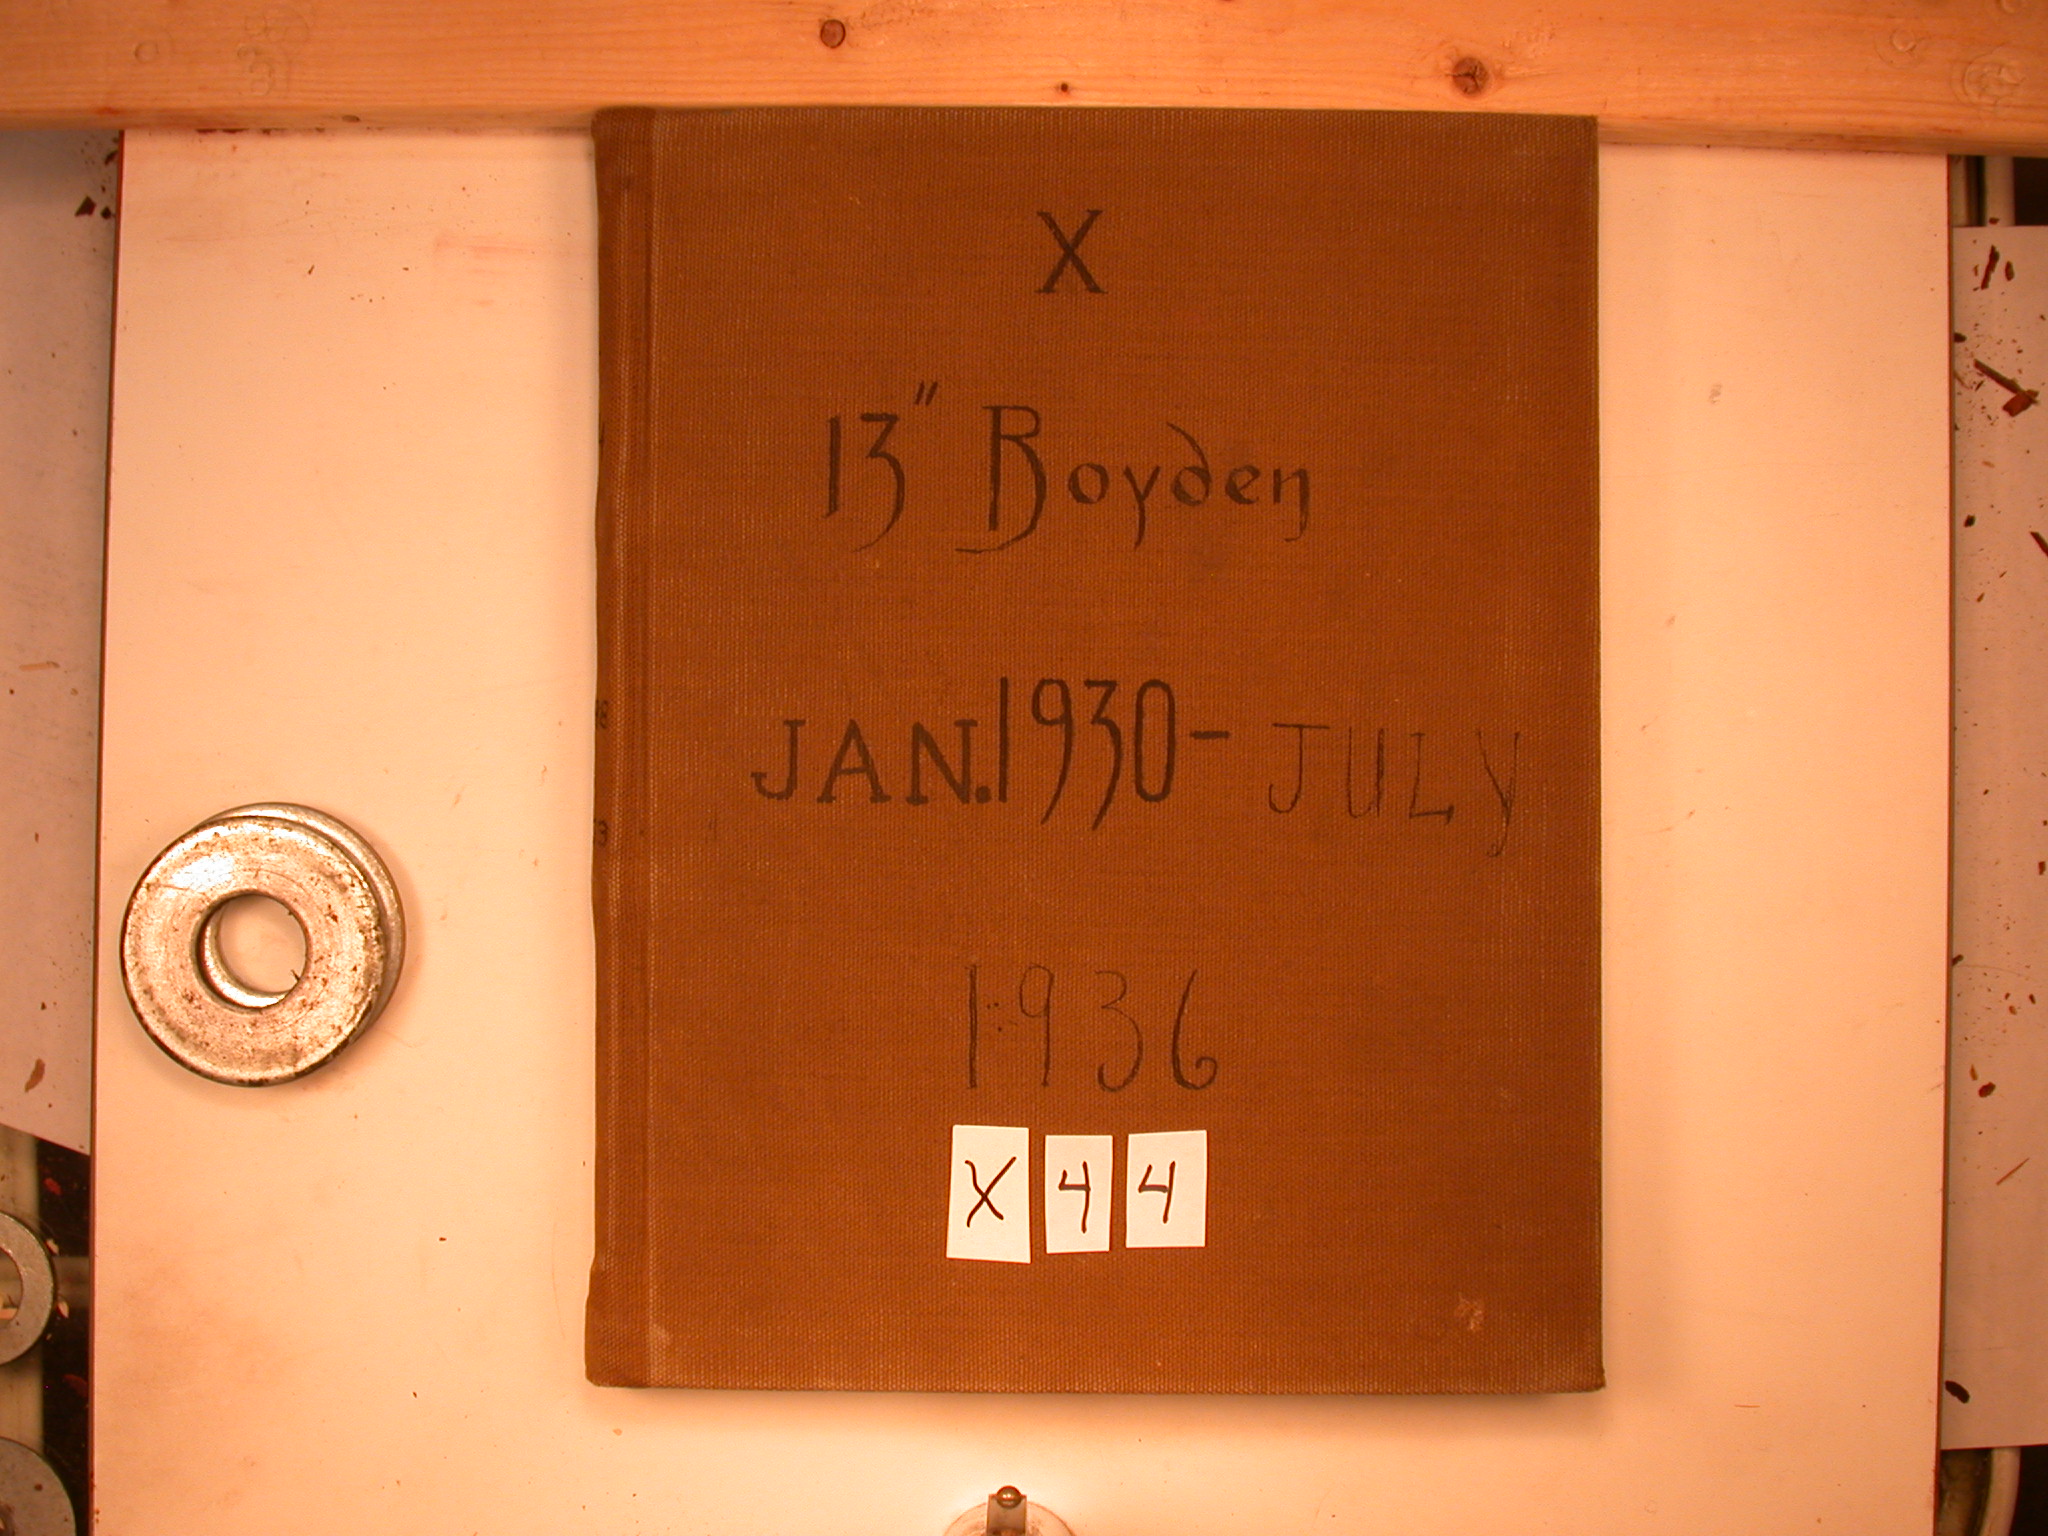 X
13" Boyden
JAN. 1930- JULY
1936
X 4 4